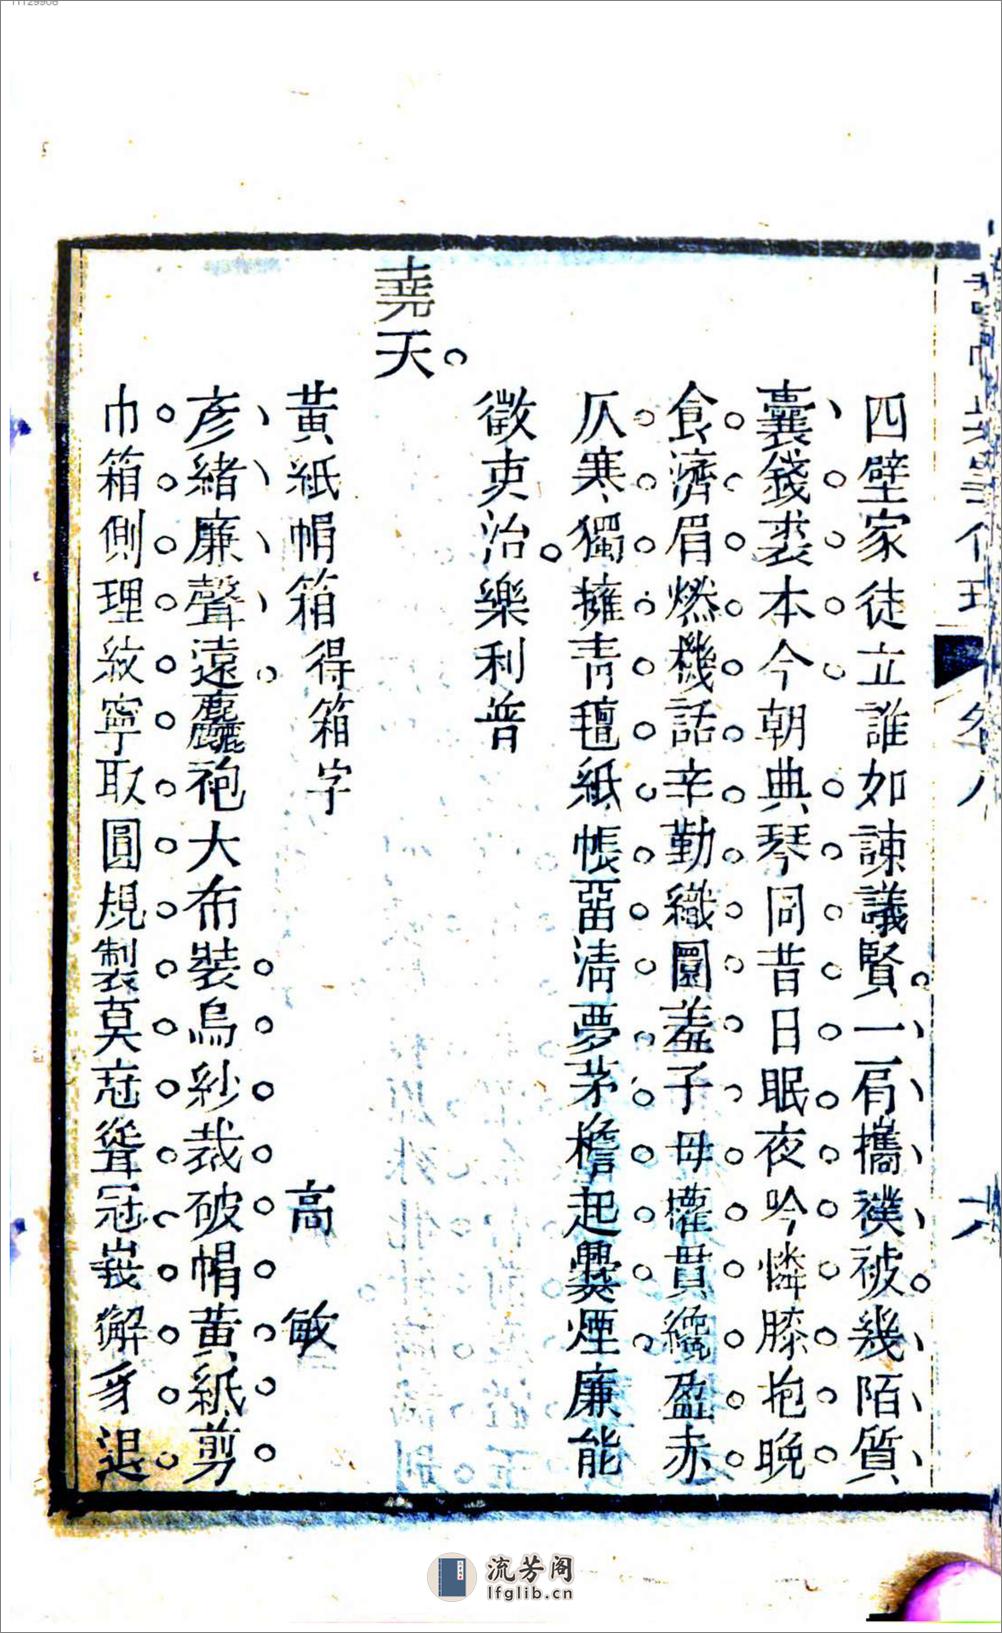 四壁家徒立誰如諫議賢一肩攜襆被幾陌質
囊錢裘本今朝典琴同昔日眠夜吟憐膝抱晚
食濟眉燃機話辛勤織園羞子母權貫纔盈赤
仄寒獨擁青氊紙帳畱清夢茅檐起爨煙廉能
徵吏治樂利普
堯天
黃紙帽箱得箱字
高敏
彥緒廉聲遠麤袍大布裝烏紗裁破帽黃紙剪
巾箱側理紋寧取圓規製莫忘聳冠峩獬豸退
卷八
六
流芳阁
lfglib.cn